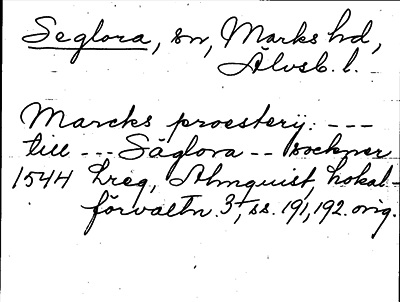 Seglora, sn, Marks hd,
Älvsb. l.
Marcks proesterij. ---
till --- Säglora -- sockner
1544 Lreg, Almquist, Lokal-
förvaltn. 3, ss. 191, 192. orig.